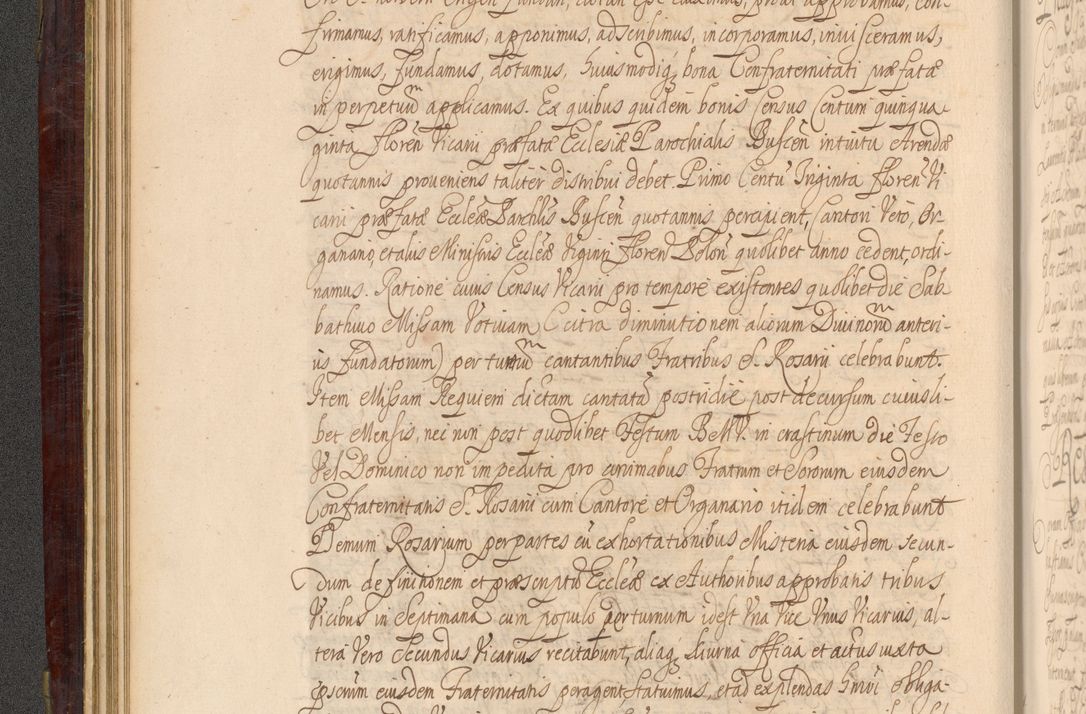 firmamus, ratificamus, apponimus, adscribimus, incorporamus, inviisceramus,
erigimus, fundamus, dotamus, huiusmodiq; bona Confraternitati præfatæ
in perpetuũm applicamus. Ex quibus quidem bonis Census Centum quinqua
ginta floren Vicarii præfatæ Ecclesiæ Parochialis Buscen intuitu Arendæ
quotannis proveniens taliter distribui debet. Primo Centũ Triginta floren Vi
carii præfatæ Eccleæ Parchlis Buscen quotannis percipient, Cantori Vero, Or-
ganario, et aliis Ministris Eccleæ Viginti floren Polon quolibet anno cedent, ordi-
namus. Ratione cuius Census Vicarii pro tempore existentes quolibet die Sab
bathivo Missam Votivam (citra diminutionem aliorum Divinorũm anteri-
us fundatorum) per turnũm cantantibus Fratribus S. Rosarii celebrabunt.
Item Missam Requiem dictam cantatã postridie post decursum cuiusli-
bet Mensis, nec non post quodlibet Festum BMV. in crastinum die Festo
Vel Dominico non impedita pro animabus Fratrum et Sororum eiusdem
Confraternitatis S. Rosarii cum Cantore et Organario itidem celebrabunt
Demum Rosarium per partes cũ exhortationibus Misteria eiusdem secun-
dum definitionem et præscriptũ Eccleæ ex Authoribus approbatis tribus
Vicibus in Septimana cum populo per turnum idest Una Vice Unus Vicarius, al-
tera Vero Secundus Vicarius recitabunt, aliaq; diurna officia et actus iuxta
ipsorum eiusdem Fraternitatis peragent, statuimus, et ad explendas huius obliga-